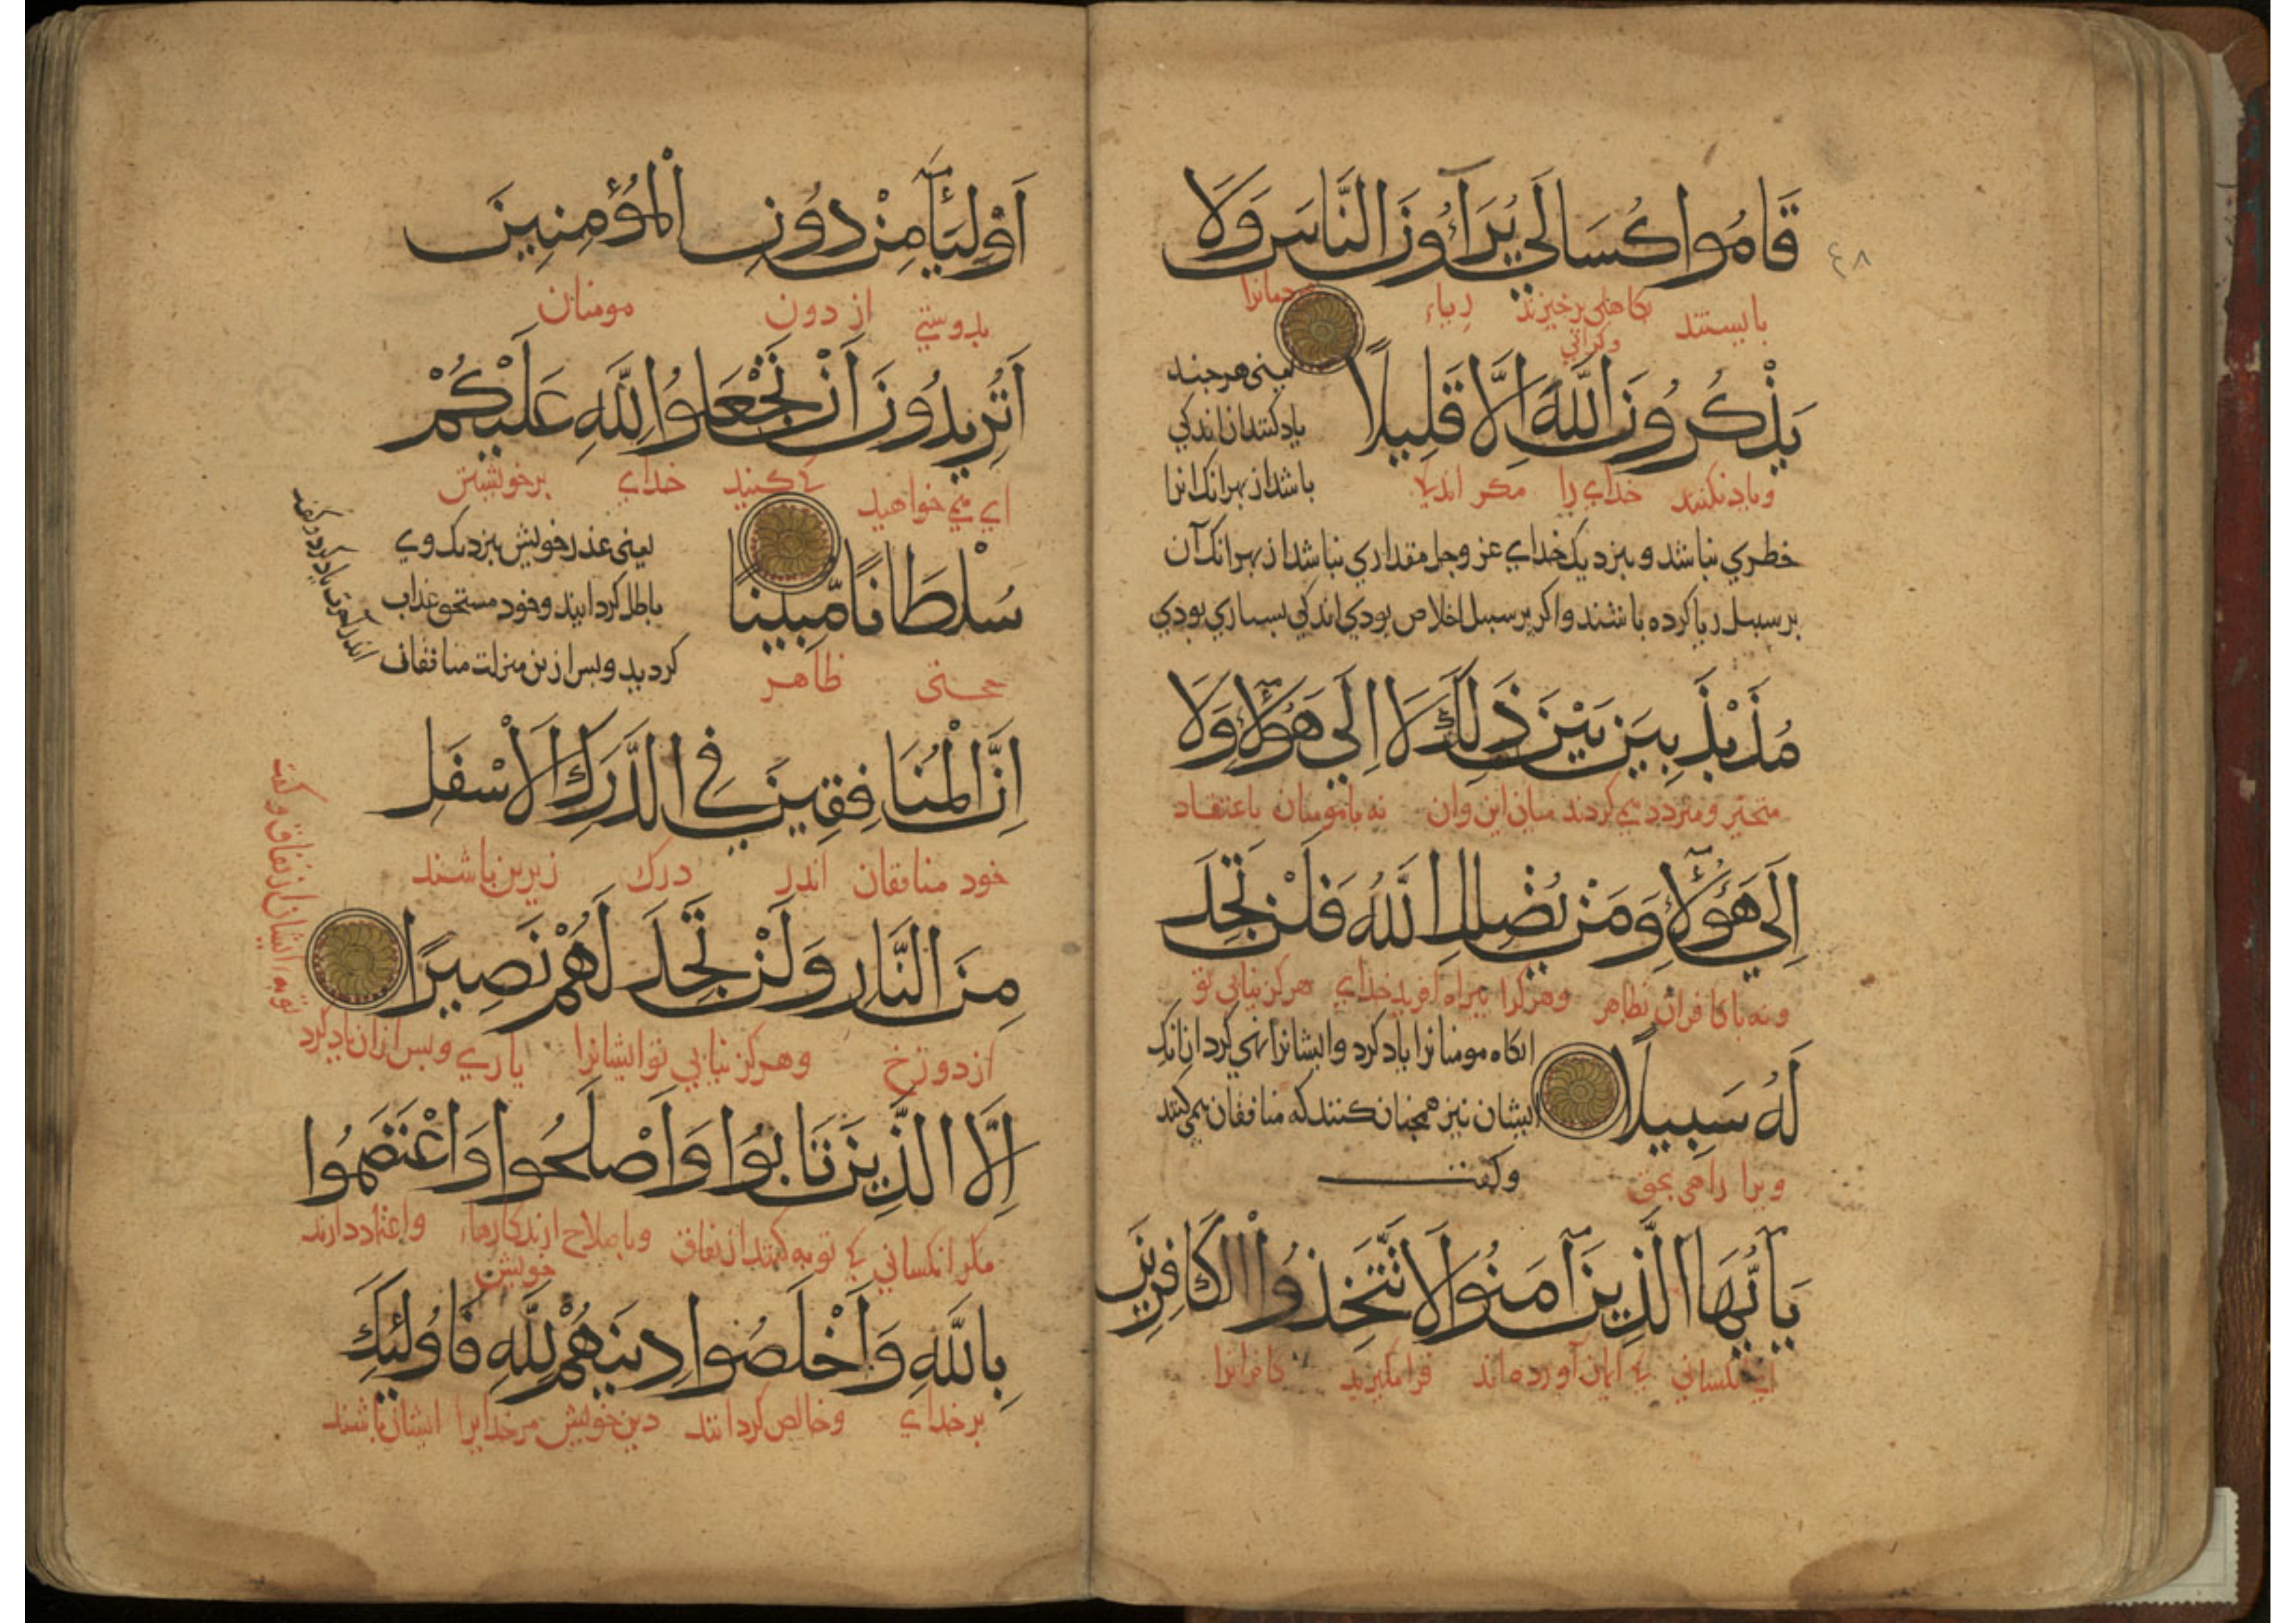 قَامُوا كُسَالَي يُرَآءُونَ النَّاسَ وَلَا
٤٨
بایستند بکاهلی برخیزند ریاء مردمانرا
وکرانی
يَذْكُرُونَ اللَّهَ اِلَّا قَلِيلًا
یعنی هر جند
یاد کنندان اندکی
باشد از بهر انک انرا
ویاد نکنند خدای را مکر اندک
خطري نباشد وبنزدیک خداي عز وجل مقداري نباشد از بهر انک آن
بر سبیل ریا کرده باشند واکر بر سبیل اخلاص بودي اندکی بسیاري بودي
مُذَبْذَبِينَ بَيْنَ ذَلِكَ لَا اِلَي هَؤُلَآءِ وَلَا
متحیر ومتردد می کردند میان این وان نه بامومنان باعتقاد
اِلَي هَؤُلَآءِ وَمَنْ يُضْلِلِ اللَّهُ فَلَنْ تَجِدَ
ونه با کافران بظاهر وهرکرا بیراه افرید خداي هرکز نیابي تو
لَهُ سَبِيلًا
انکاه مومنانرا یاد کرد وایشانرا نهی کرد ازانک
ایشان نیز همجنان کنند که منافقان می کنند
وکفت
ویرا راهی بحق
يَآ اَيُّهَا الَّذِينَ آمَنُوا لَا تَتَّخِذُوا الْكَافِرِينَ
اي کسانی که ایمان آورده اند فرا مکیرید کافرانرا
اَوْلِيَآءَ مِنْ دُونِ الْمُؤْمِنِينَ
بدوستي از دون مومنان
اَتُرِيدُونَ اَنْ تَجْعَلُوا لِلَّهِ عَلَيْكُمْ
اي می خواهید که کنید خداي برخویشتن
سُلْطَانًا مُّبِينًا
یعنی عذر خویش بنزدیک وي
باطل کردانید وخود مستحق عذاب
کردید وپس ازین منزلت منافقان
اندر آخرت یاد کرد وکفت
حجتی ظاهر
اِنَّ الْمُنَافِقِينَ فِي الدَّرَكِ الْاَسْفَلِ
خود منافقان اندر درک زیرین باشند
مِنَ النَّارِ وَلَنْ تَجِدَ لَهُمْ نَصِيرًا
از دوزخ وهرکز نیابي تو ایشانرا یاري وپس ازان یاد کرد
توبه ایشان از نفاق وکفت
اِلَّا الَّذِينَ تَابُوا وَاَصْلَحُوا وَاعْتَصَمُوا
مکر انکسانی که توبه کنند از نفاق وباصلاح ارند کارهاء واعتماد دارند
خویش
بِاللَّهِ وَاَخْلَصُوا دِينَهُمْ لِلَّهِ فَاُولَئِكَ
بر خداي وخالص کردانند دین خویش مر خدایرا ایشان باشند